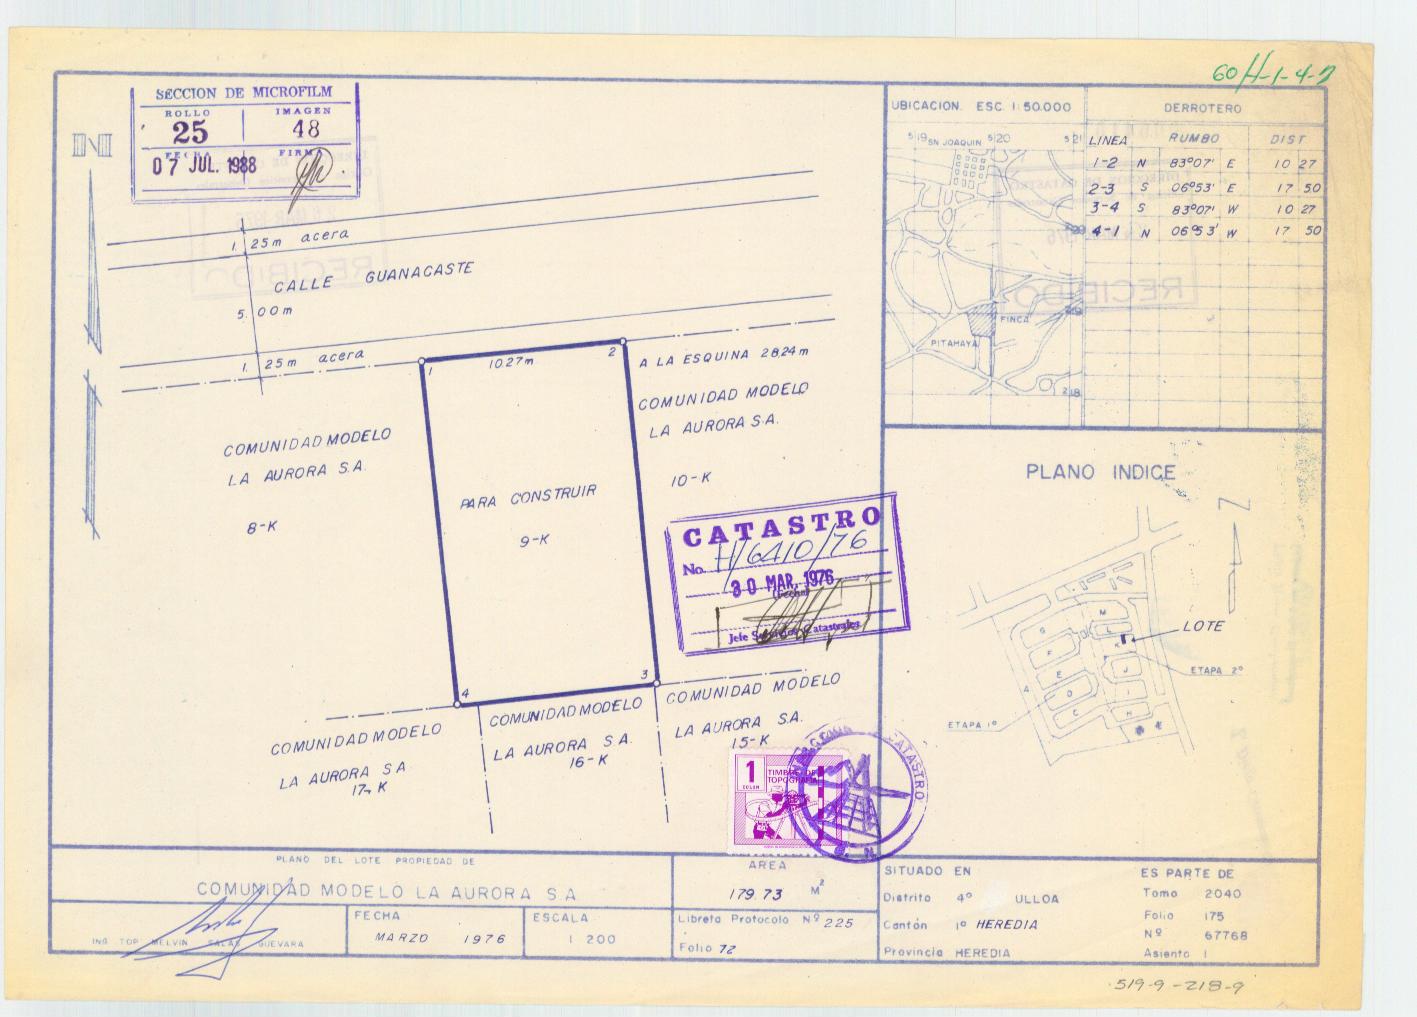 60 H-1-4-7
SECCION DE MICROFILM
ROLLO IMAGEN
25 48
FECHA FIRMA
07 JUL. 1988
N
1. 25m acera
CALLE GUANACASTE
5. 00m
1. 25m acera
1
10.27m
2
A LA ESQUINA 28.24m
COMUNIDAD MODELO
LA AURORA S.A.
10-K
COMUNIDAD MODELO
LA AURORA S.A.
8-K
PARA CONSTRUIR
9-K
CATASTRO
No. H/6410/76
30 MAR. 1976
(fecha)
3
4
COMUNIDAD MODELO
LA AURORA S.A.
15-K
COMUNIDAD MODELO
LA AURORA S.A.
16-K
COMUNIDAD MODELO
LA AURORA S A
17-K
1
COLON
TIMBRE DE
TOPOGRAFIA
CATASTRO
UBICACION. ESC. 1:50.000
519 SN JOAQUIN 520 521
220
219
FINCA
PITAHAYA
218
DERROTERO
LINEA RUMBO DIST
1-2 N 83°07' E 10 27
2-3 S 06°53' E 17 50
3-4 S 83°07' W 10 27
4-1 N 06°53' W 17 50
RECIBIDO
RECIBIDO
PLANO INDICE
N
M
L
K
LOTE
G
F
E
D
C
A
J
I
H
ETAPA 2°
ETAPA 1°
PLANO DEL LOTE PROPIEDAD DE
COMUNIDAD MODELO LA AURORA S.A
ING. TOP. MELVIN SALAS GUEVARA
FECHA
MARZO 1976
ESCALA
1 200
AREA
179.73 M²
Libreta Protocolo Nº 225
Folio 72
SITUADO EN
Distrito 4° ULLOA
Cantón 1° HEREDIA
Provincia HEREDIA
ES PARTE DE
Tomo 2040
Folio 175
Nº 67768
Asiento 1
519-9-218-9